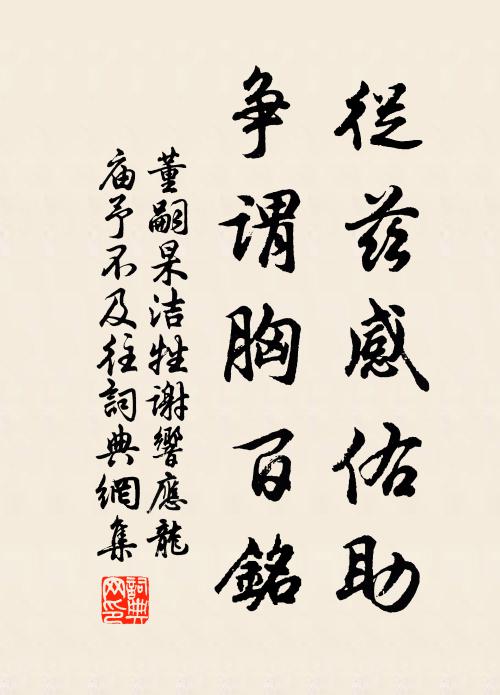 從茲感佑助
争謂胸百銘
董嗣杲洁牲谢響應龍
庙予不及往詞典網集
詞典網印